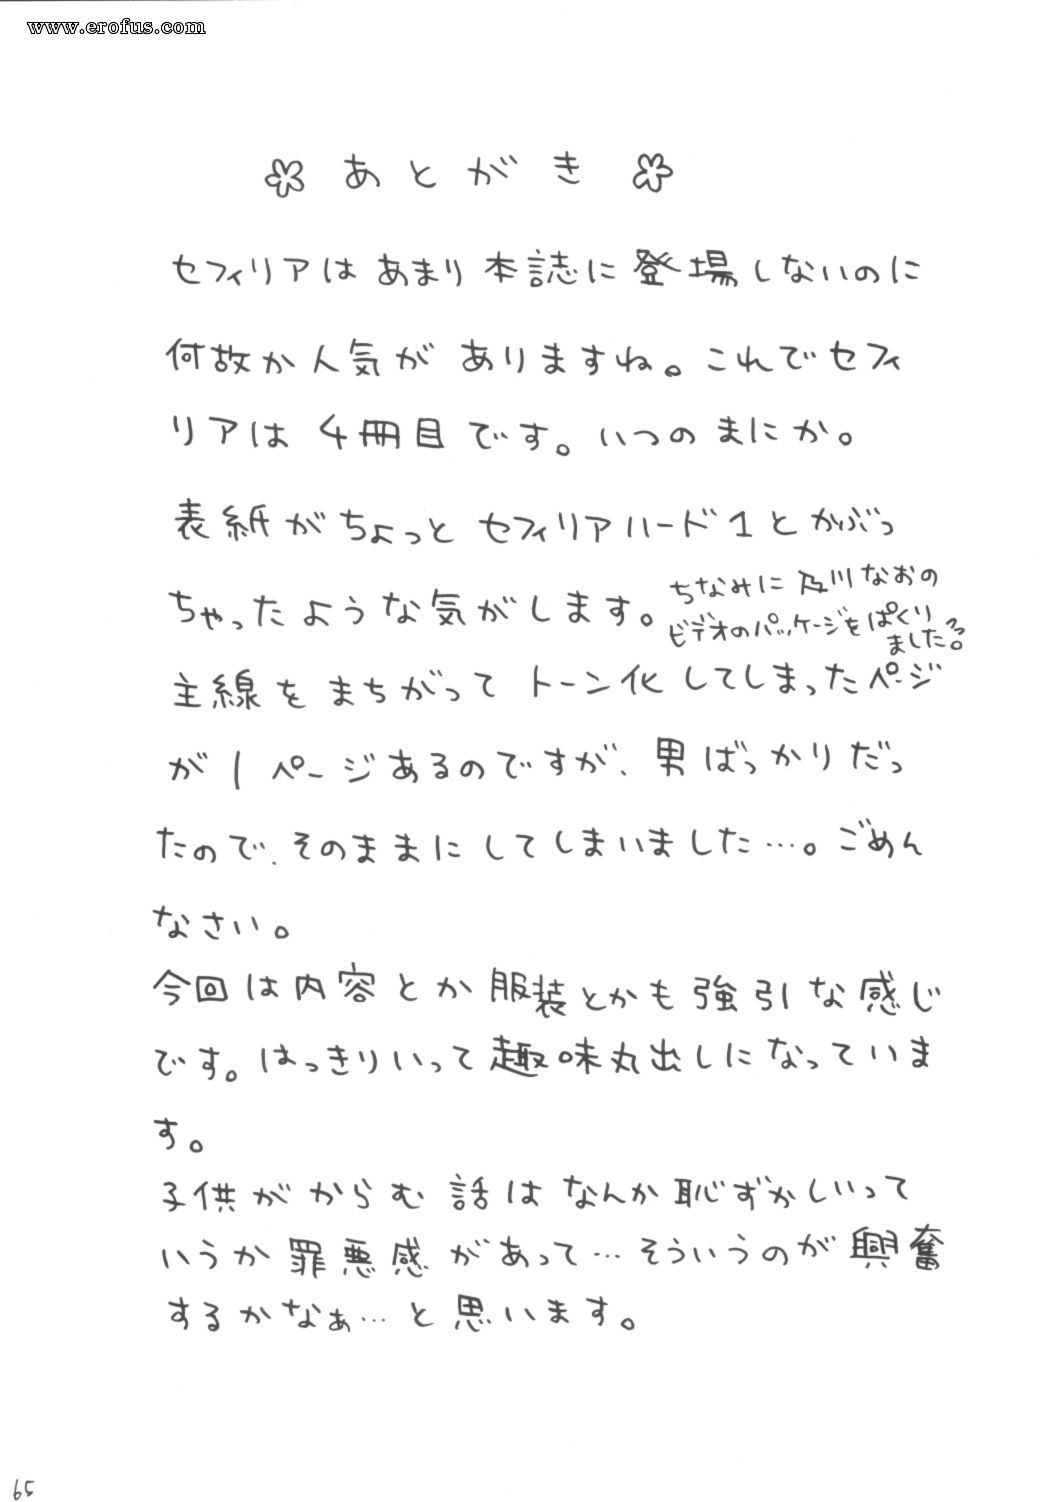 www.erofus.com
あとがき
セフィリアは あまり 本誌に 登場しないのに
何故か人気が ありますね。これでセフィ
リアは 4冊目です。いつのまにか。
表紙がちょっと セフィリアハード1とかぶっ
ちゃったような気がします。
ちなみに 及川なおの
ビデオのパッケージをぱくり
ました。
主線を まちがって トーン化してしまったページ
が1ページあるのですが、男ばっかりだっ
たので、そのままにしてしまいました…。ごめん
なさい。
今回は内容とか服装とかも強引な感じ
です。はっきりいって趣味丸出しになっていま
す。
子供がからむ話はなんか恥ずかしいって
いうか罪悪感があって…そういうのが興奮
するかなぁ…と思います。
65